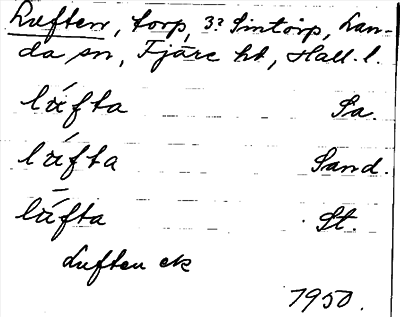 Luften, torp, 3? Sintorp, Lan-
da sn, Fjäre hd, Hall. l.
lúfta Sa.
lúfta Sand.
lúfta St.
Luften ek
1950.